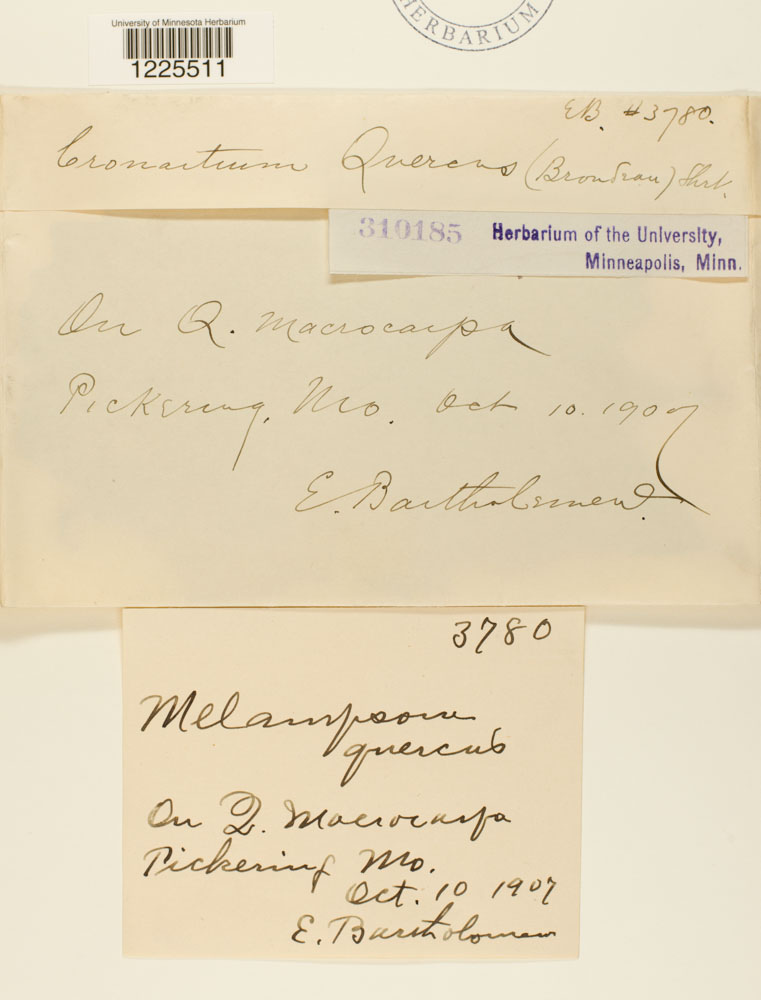 University of Minnesota Herbarium
1225511
HERBARIUM
EB. #3780.
Cronartium Quercus (Brondeau) Shrt.
310185 Herbarium of the University,
Minneapolis, Minn.
On Q. Macrocarpa
Pickering, Mo. Oct 10. 1907
E. Bartholomew.
3780
Melampsora
quercus
On Q. Macrocarpa
Pickering Mo.
Oct. 10 1907
E. Bartholomew